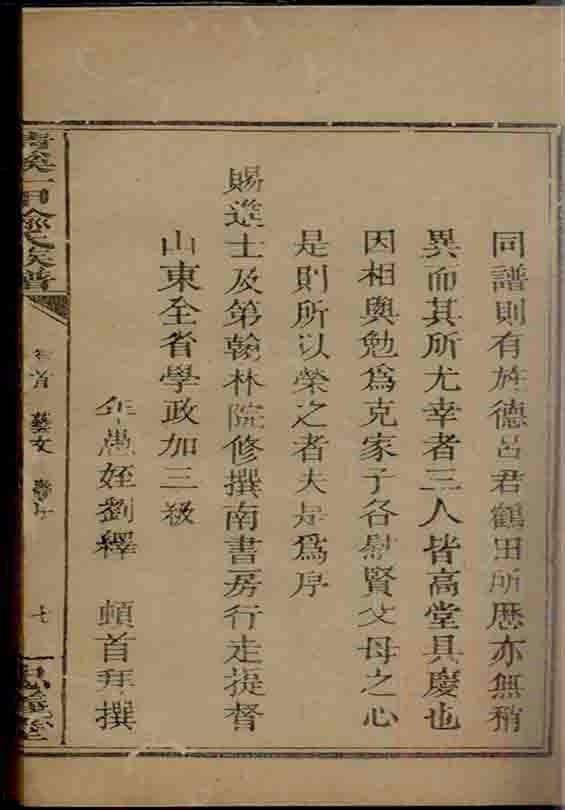 同譜則有旌德呂君鶴田所歷亦無稍
異而其所尤幸者三人皆高堂具慶也
因相與勉為克家子各慰賢父母之心
是則所以榮之者夫是為序
賜進士及第翰林院修撰南書房行走提督
山東全省學政加三級
年愚姪劉繹 頓首拜撰
族譜
卷首 藝文
七